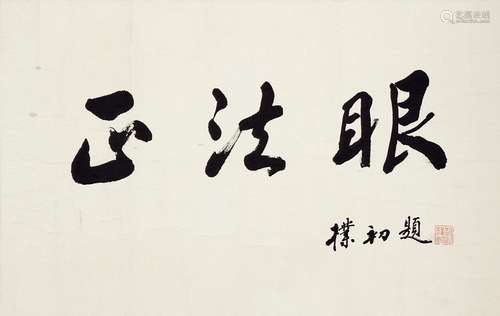 正法眼
樸初題